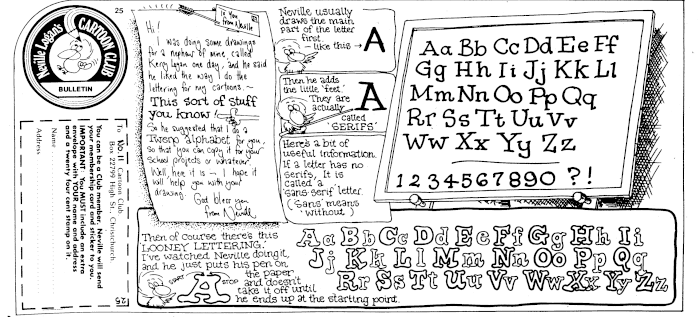 Neville Logan's
CARTOON CLUB
BULLETIN
25
To No 11 Cartoon Club
Box 22799 High St. Christchurch
You can be a Club member. Neville will send
your membership card and sticker to you.
IMPORTANT: You MUST include an extra
envelope with YOUR name and address
and a twenty four cent stamp on it.
Name
Address
25
To You
from Neville
Hi!
I was doing some drawings
for a nephew of mine, called
Kerry Logan one day, and he said
he liked the way I do the
lettering for my cartoons. ~
This sort of stuff
you know!
So he suggested that I do a
alphabet for you,
so that you can copy it for your
school projects or whatever.
Well, here it is ~ I hope it
will help you with your
drawing.
God bless you
from Neville
Neville usually
draws the main
part of the letter
first
- like this → A
Then he adds
the little 'feet.'
They are
actually
called
'SERIFS'
A
Here's a bit of
useful information.
If a letter has no
serifs, It is
called a
'sans serif' letter.
('Sans' means
'without')
Aa Bb Cc Dd Ee Ff
Gg Hh Ii Jj Kk Ll
Mm Nn Oo Pp Qq
Rr Ss Tt Uu Vv
Ww Xx Yy Zz
1234567890 ?!
Then of course there's this
LOONEY LETTERING.
I've watched Neville doing it,
and he just puts his pen on
the paper
and doesn't
take it off until
he ends up at the starting point.
START
A
STOP
Aa Bb Cc Dd Ee Ff Gg Hh Ii
Jj Kk Ll Mm Nn Oo Pp Qq
Rr Ss Tt Uu Vv Ww Xx Yy Zz